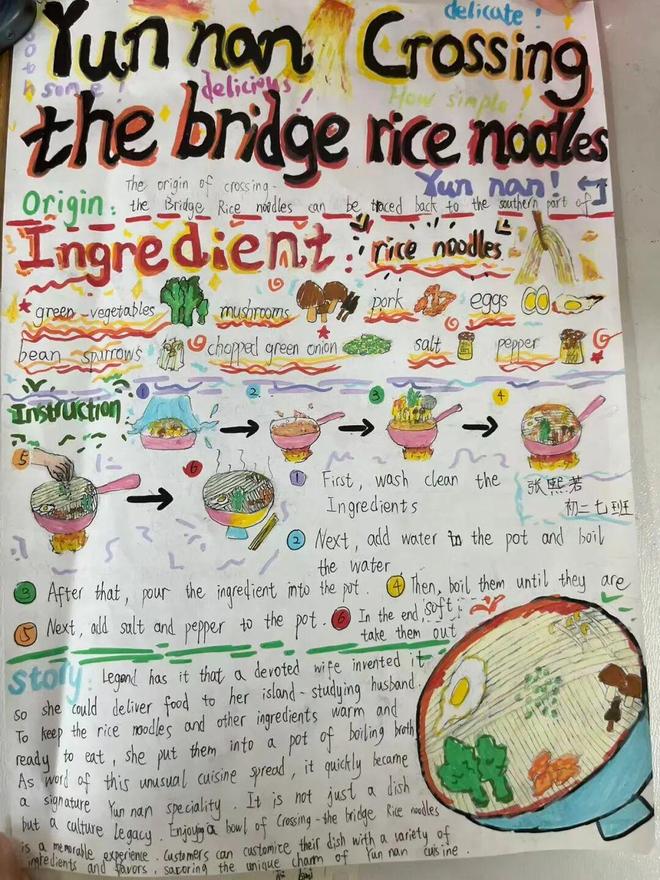 Yun nan Crossing
delicate!
delicious!
How simple!
the bridge rice noodles
Origin: The origin of crossing-
the Bridge Rice noodles can be traced back to the southern part of
Yun nan!
Ingredient: rice noodles
green vegetables mushrooms pork eggs
bean sparrows chopped green onion salt pepper
Instruction
1 2 3 4
5 6
① First, wash clean the
Ingredients
张熙若
初二七班
② Next, add water in the pot and boil
the water
③ After that, pour the ingredient into the pot. ④ Then, boil them until they are
soft;
⑤ Next, add salt and pepper to the pot. ⑥ In the end,
take them out
story: Legend has it that a devoted wife invented it
so she could deliver food to her island-studying husband.
To keep the rice noodles and other ingredients warm and
ready to eat, she put them into a pot of boiling broth
As word of this unusual cuisine spread, it quickly became
a signature Yun nan speciality. It is not just a dish
but a culture legacy. Enjoying a bowl of Crossing-the bridge Rice noodles
is a memorable experience. Customers can customize their dish with a variety of
ingredients and flavors, savoring the unique charm of Yun nan cuisine.